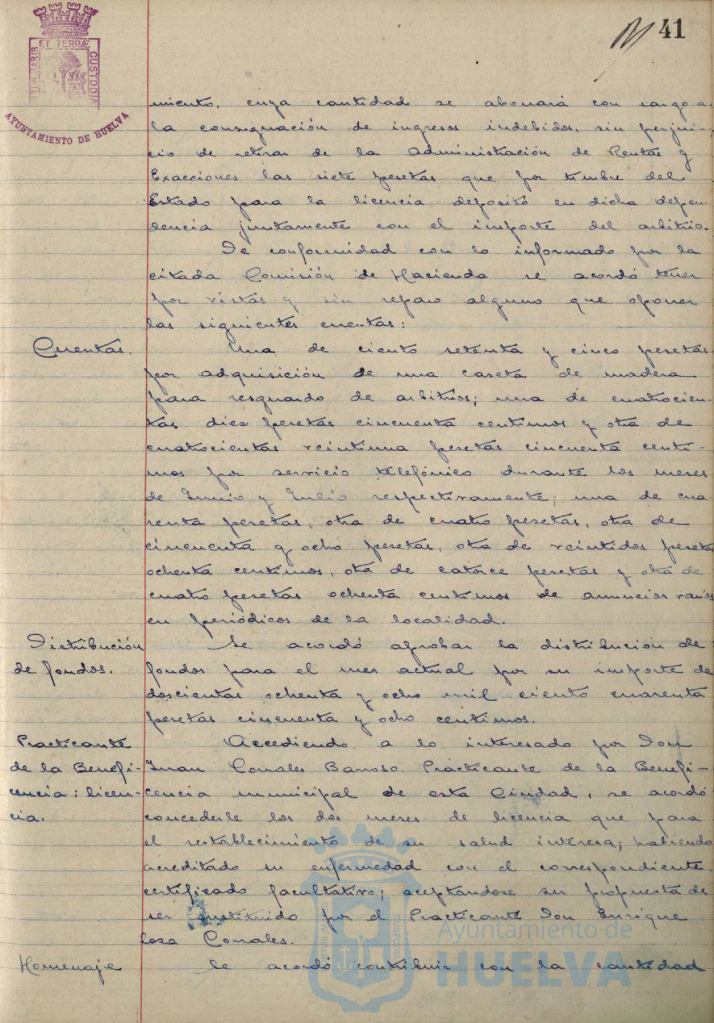 41
PORTUS MARIS ET TERRÆ CUSTODIA
AYUNTAMIENTO DE HUELVA
miento, cuya cantidad se abonará con cargo a
la consignación de ingresos indebidos, sin perjui-
cio de retirar de la Administración de Rentas y
Exacciones las siete pesetas que por timbre del
Estado para la licencia depositó en dicha depen-
dencia juntamente con el importe del arbitrio.
De conformidad con lo informado por la
citada Comisión de Hacienda se acordó tener
por vistas y sin reparo alguno que oponer
las siguientes cuentas:
Cuentas. Una de ciento setenta y cinco pesetas
por adquisición de una caseta de madera
para resguardo de arbitrios; una de cuatrocien-
tas diez pesetas cincuenta centimos y otra de
cuatrocientas veintiuna pesetas cincuenta centi-
mos por servicio telefónico durante los meses
de Junio y Julio respectivamente; una de cua
renta pesetas, otra de cuatro pesetas, otra de
cincuenta y ocho pesetas, otra de veintidos pesetas
ochenta centimos, otra de catorce pesetas y otra de
cuatro pesetas ochenta centimos de anuncios varios
en periódicos de la localidad.
Distribución Se acordó aprobar la distribución de
de fondos. fondos para el mes actual por su importe de
doscientas ochenta y ocho mil ciento cuarenta
pesetas cincuenta y ocho centimos.
Practicante Accediendo a lo interesado por Don
de la Benefi- Juan Corrales Barroso Practicante de la Benefi-
cencia: licen- cencia municipal de esta Ciudad, se acordó
cia. concederle los dos meses de licencia que para
el restablecimiento de su salud interesa; habiendo
acreditado su enfermedad con el correspondiente
certificado facultativo; aceptandose su propuesta de
ser sustituido por el Practicante Don Enrique
Corrales.
Homenaje Se acordó contribuir con la cantidad
Ayuntamiento de
HUELVA